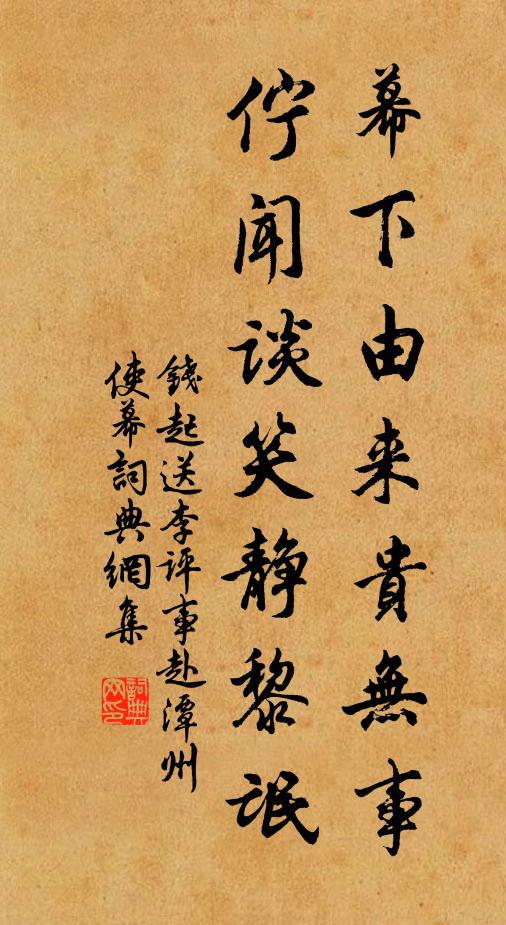 幕下由来貴無事
佇闻谈笑静黎氓
錢起送李评事赴潭州
使幕詞典網集
詞典網印